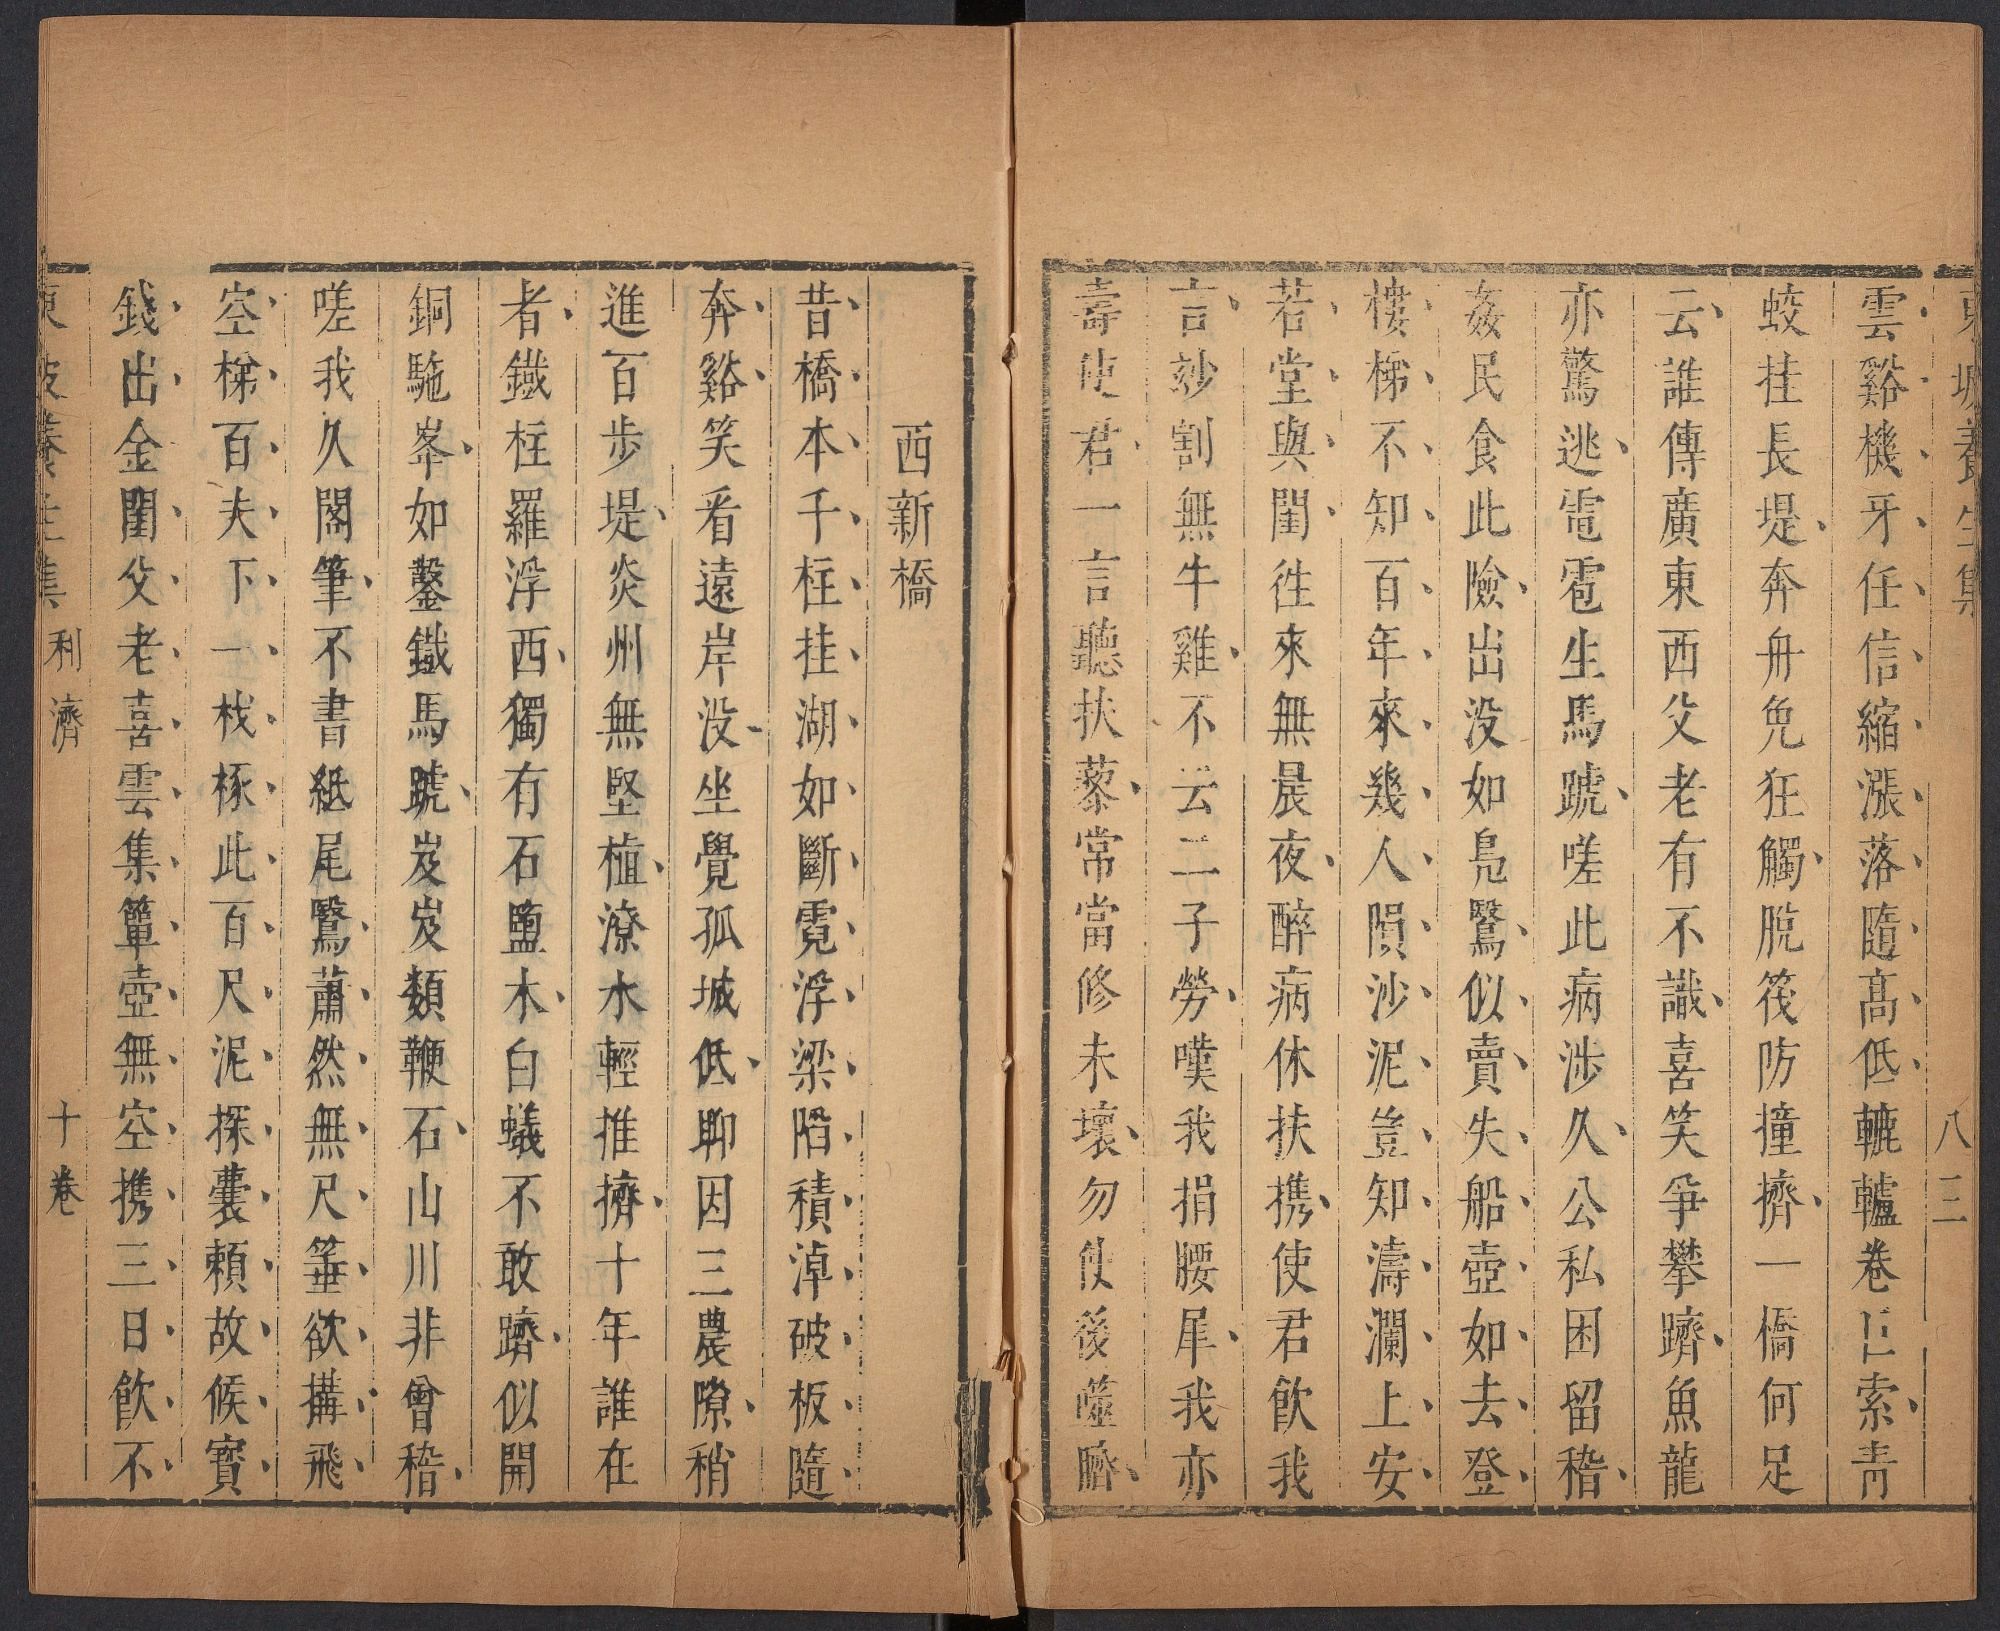 東坡養生集
八三
雲谿機牙任信縮漲落隨髙低轆轤卷巨索靑
蛟挂長堤奔舟免狂觸脫筏防撞擠一橋何足
云誰傳廣東西父老有不識喜笑爭攀躋魚龍
亦驚逃雷雹生馬蹏嗟此病涉久公私困留稽
姦民食此險出没如鳧鷖似賣失船壺如去登
樓梯不知百年來幾人隕沙泥豈知濤瀾上安
若堂與閨徃來無晨夜醉病休扶攜使君飲我
言玅割無牛雞不云二子勞嘆我捐腰犀我亦
壽使君一言聽扶藜常當修未壞勿使後噬臍
西新橋
昔橋本千柱挂湖如斷霓浮梁陷積淖破板隨
奔谿笑看遠岸没坐覺孤城低聊因三農隙稍
進百步堤炎州無堅植潦水輕推擠十年誰在
者鐵柱羅浮西獨有石鹽木白蟻不敢躋似開
銅駞峯如鑿鐵馬蹏岌岌類鞭石山川非會稽
嗟我久閣筆不書紙尾鷖蕭然無尺箠欲搆飛
空梯百夫下一杙椓此百尺泥探囊賴故侯寳
錢出金閨父老喜雲集簞壺無空攜三日飲不
東坡養生集 利濟 十卷